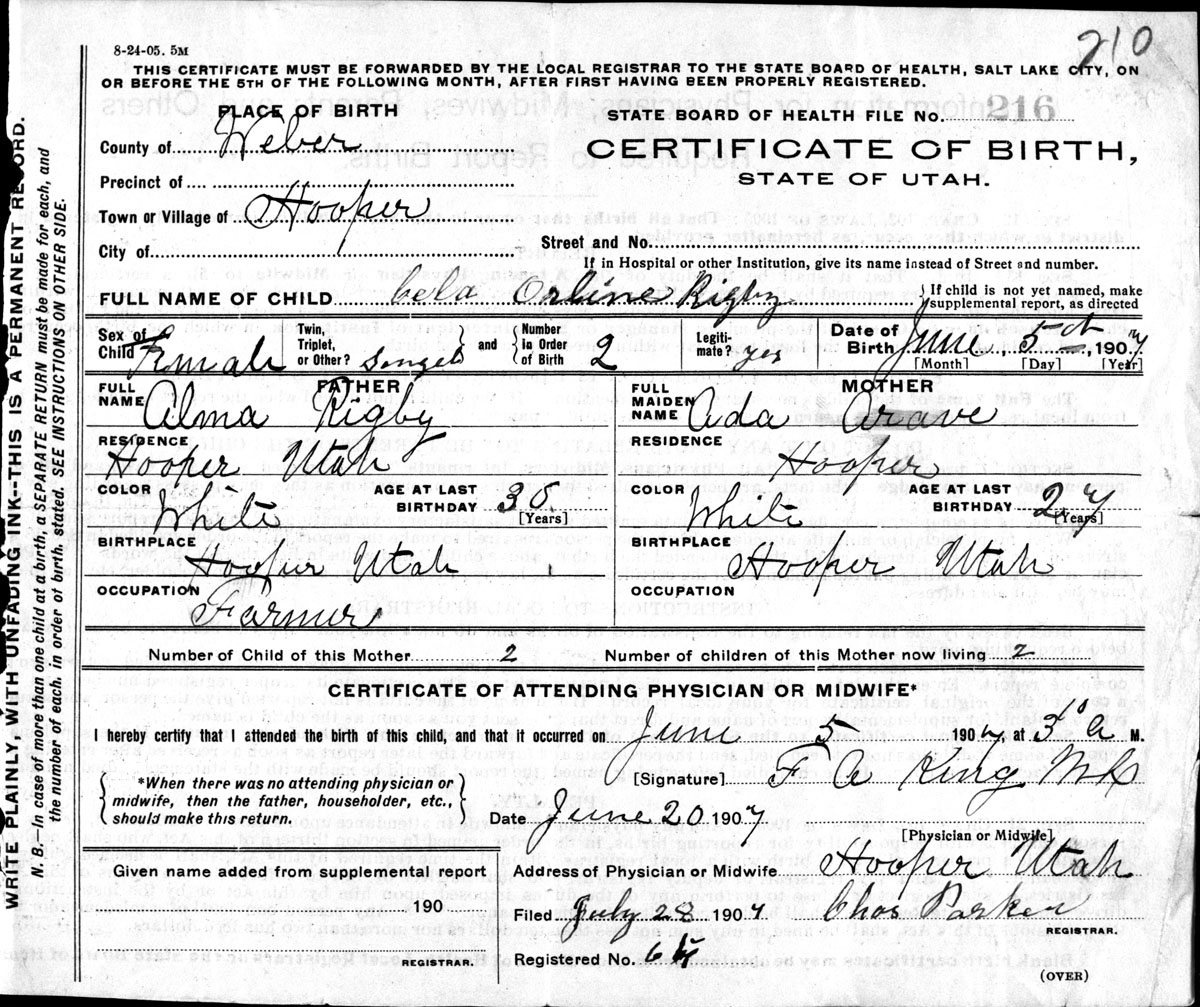 210
8-24-05. 5M
THIS CERTIFICATE MUST BE FORWARDED BY THE LOCAL REGISTRAR TO THE STATE BOARD OF HEALTH, SALT LAKE CITY, ON
OR BEFORE THE 5TH OF THE FOLLOWING MONTH, AFTER FIRST HAVING BEEN PROPERLY REGISTERED.
PLACE OF BIRTH
STATE BOARD OF HEALTH FILE No. 216
County of Weber
CERTIFICATE OF BIRTH,
STATE OF UTAH.
Precinct of
Town or Village of Hooper
City of
Street and No.
If in Hospital or other Institution, give its name instead of Street and number.
FULL NAME OF CHILD Orline Rigby { If child is not yet named, make supplemental report, as directed
Sex of Child Female Twin, Triplet, or Other? and { Number in Order of Birth 2 Legiti-mate? yes Date of Birth June, 5, 1907
[Month] [Day] [Year]
FATHER
FULL NAME Alma Rigby
MOTHER
FULL MAIDEN NAME Ada Arave
RESIDENCE
Hooper Utah
RESIDENCE
Hooper
COLOR White AGE AT LAST BIRTHDAY 30 [Years]
COLOR White AGE AT LAST BIRTHDAY 27 [Years]
BIRTHPLACE
Hooper Utah
BIRTHPLACE
Hooper Utah
OCCUPATION
Farmer
OCCUPATION
Number of Child of this Mother 2 Number of children of this Mother now living 2
CERTIFICATE OF ATTENDING PHYSICIAN OR MIDWIFE*
I hereby certify that I attended the birth of this child, and that it occurred on June 5 1907, at A M.
{ *When there was no attending physician or midwife, then the father, householder, etc., should make this return. }
[Signature] F A King
Date June 20 1907
[Physician or Midwife]
Given name added from supplemental report
190
REGISTRAR.
Address of Physician or Midwife Hooper Utah
Filed July 28 1907 Chas Parker
REGISTRAR.
Registered No.
(OVER)
WRITE PLAINLY WITH UNFADING INK--THIS IS A PERMANENT RECORD.
N. B.—In case of more than one child at a birth, a SEPARATE RETURN must be made for each, and
the number of each, in order of birth, stated. SEE INSTRUCTIONS ON OTHER SIDE.